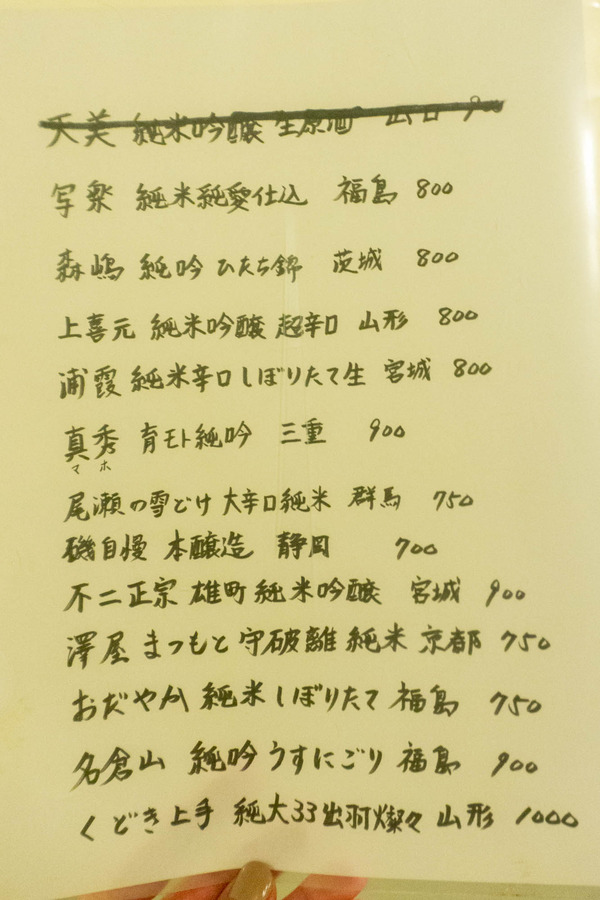 天美 純米吟醸 生原酒 山口 900
写楽 純米純愛仕込 福島 800
森嶋 純吟 ひたち錦 茨城 800
上喜元 純米吟醸 超辛口 山形 800
浦霞 純米辛口しぼりたて生 宮城 800
真秀 育モト純吟 三重 900
マホ
尾瀬の雪どけ 大辛口純米 群馬 750
磯自慢 本醸造 静岡 700
不二正宗 雄町純米吟醸 宮城 900
澤屋まつもと守破離純米 京都 750
おだやか 純米しぼりたて 福島 750
名倉山 純吟うすにごり 福島 900
くどき上手 純大33出羽燦々 山形 1000